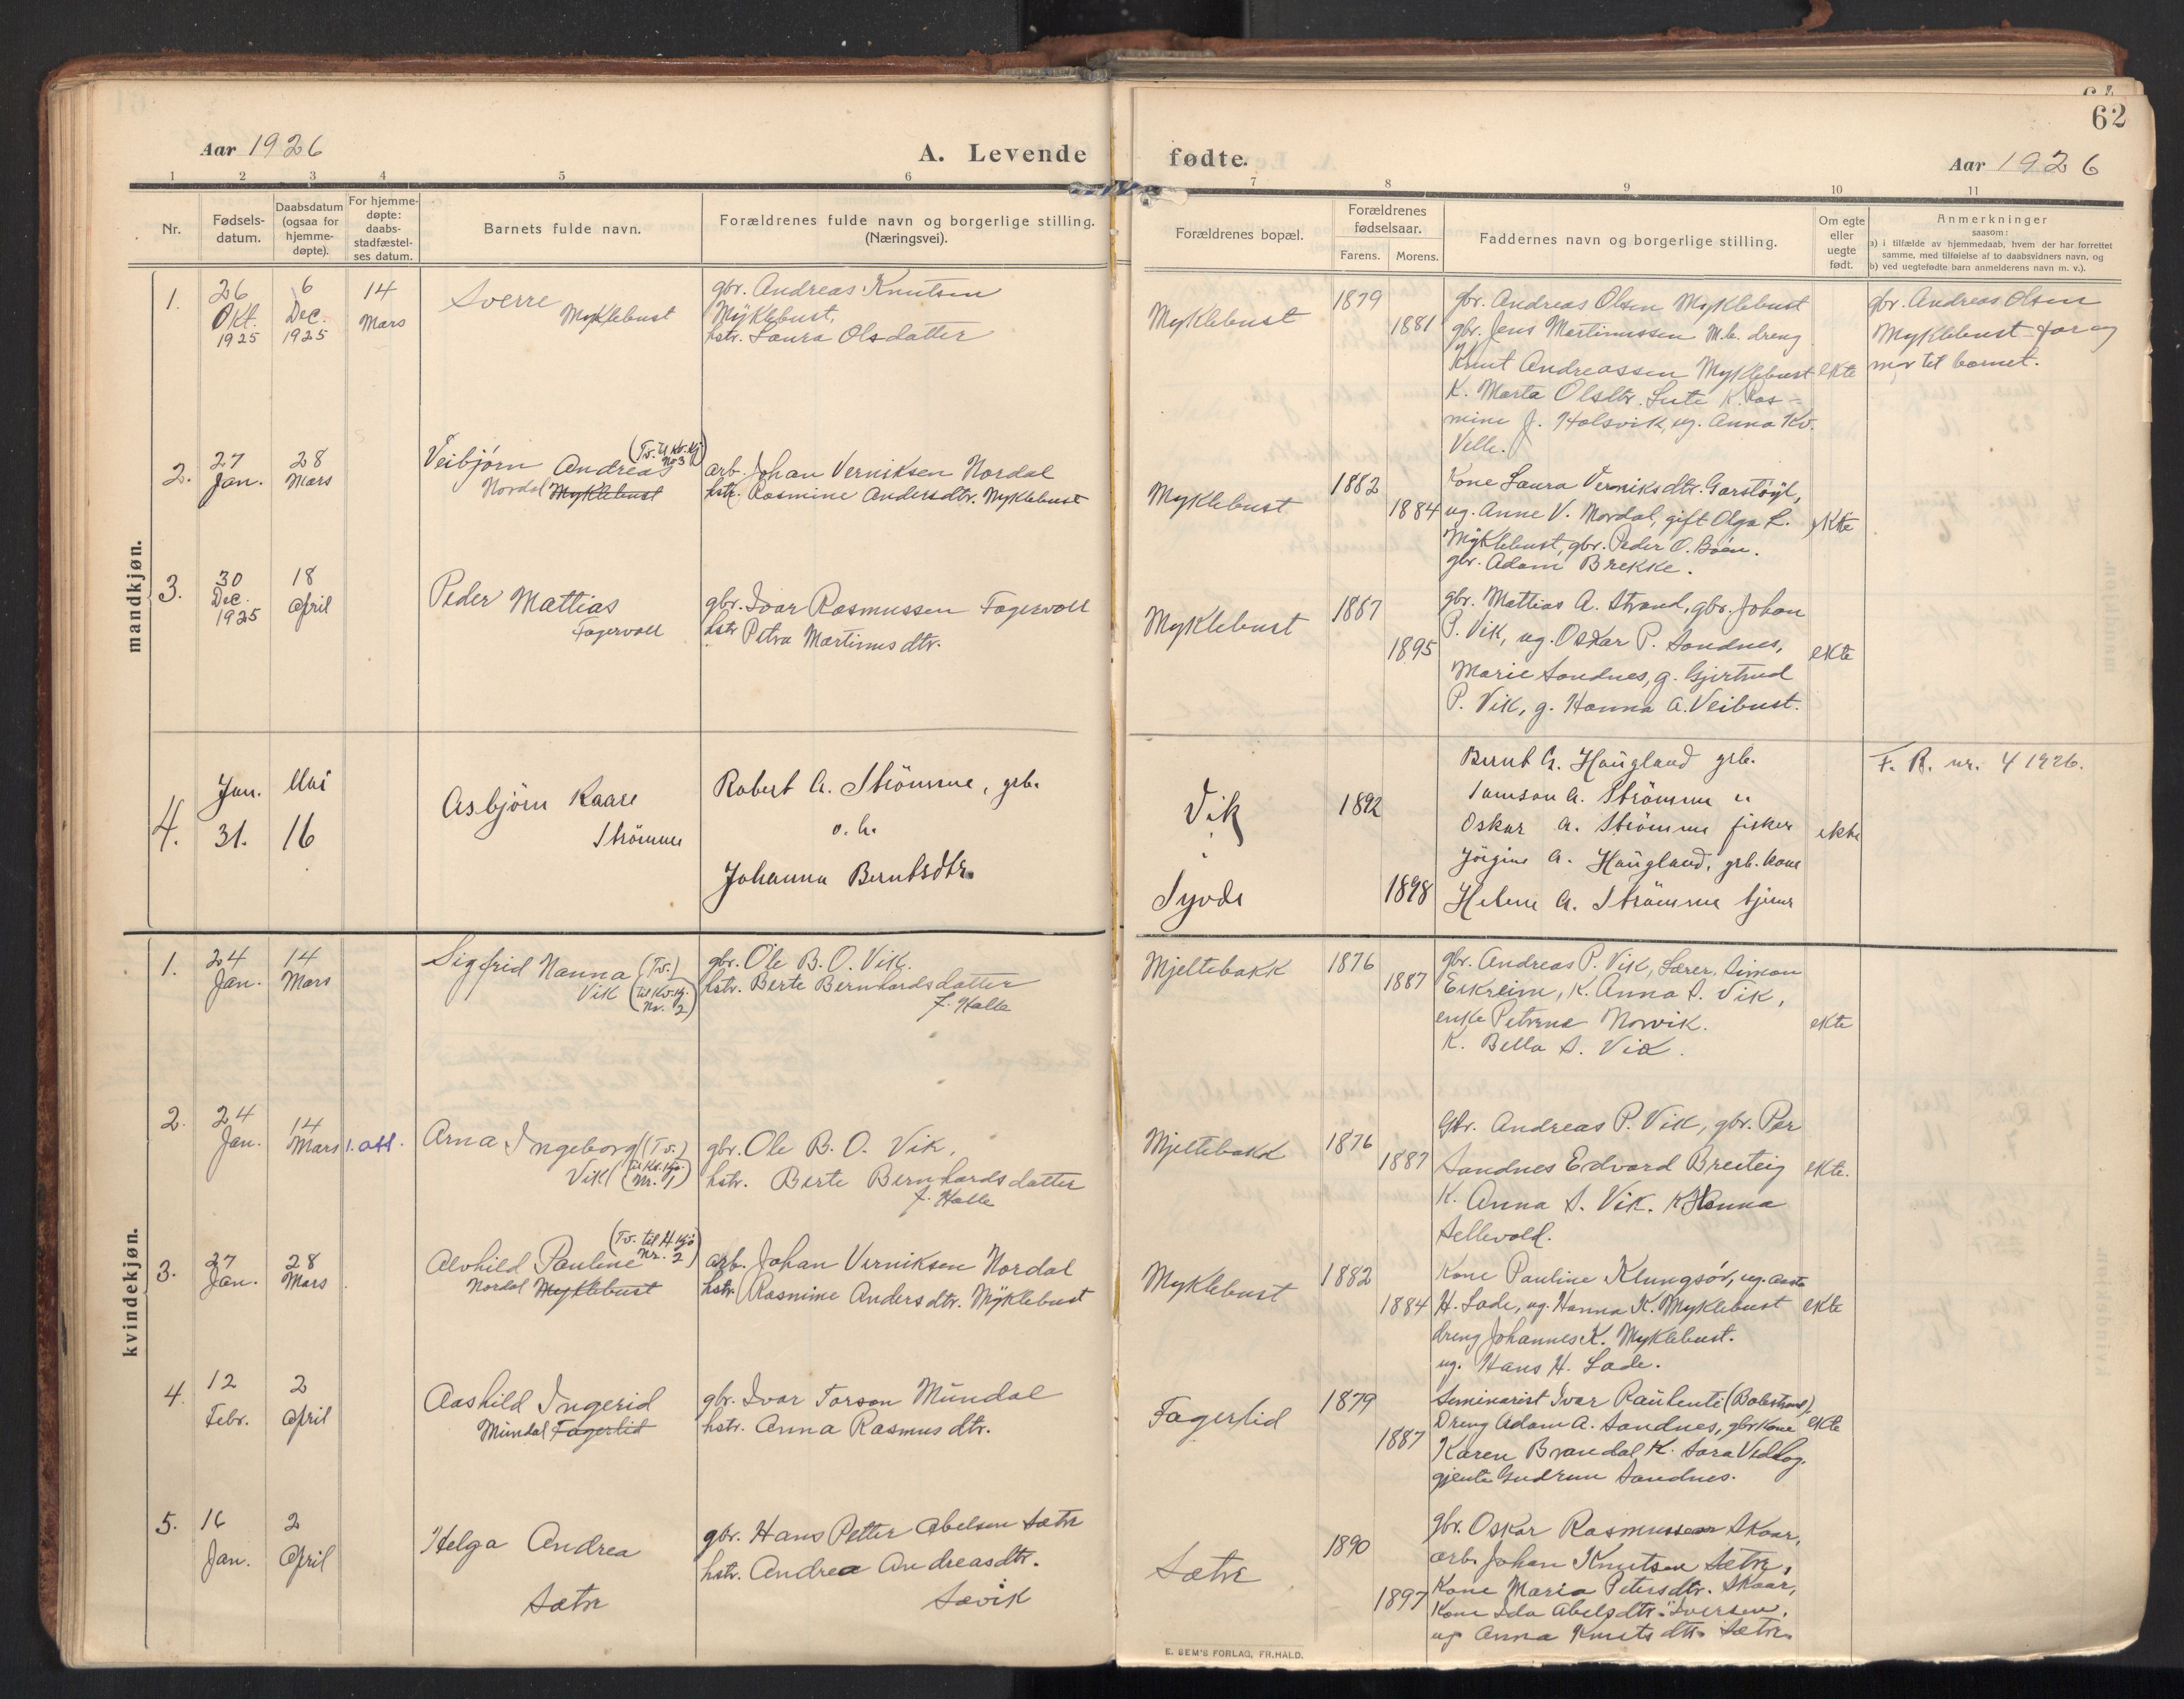 62
Aar 1926
A. Levende
fødte.
Aar 1926
1 2 3 4 5 6 7 8 9 10 11
Nr.
Fødsels-
datum.
Daabsdatum
(ogsaa for
hjemme-
døpte).
For hjemme-
døpte:
daabs-
stadfæstel-
ses datum.
Barnets fulde navn.
Forældrenes fulde navn og borgerlige stilling.
(Næringsvei).
Forældrenes bopæl.
Forældrenes
fødselsaar.
Farens. Morens.
Faddernes navn og borgerlige stilling.
Om egte
eller
uegte
født.
Anmerkninger
saasom:
a) i tilfælde av hjemmedaab, hvem der har forrettet
samme, med tilføielse af to daabsvidners navn, og
b) ved uegtefødte barn anmelderens navn m. v.).
mandkjøn.
1.
26
Okt.
1925
6
Dec.
1925
14
Mars
Sverre
Myklebust
gbr. Andreas Knutsen
Myklebust,
hstr. Laura Olsdatter
Myklebust
1879
1881
gbr. Andreas Olsen Myklebust
gbr. Jens Martinussen M.b. dreng
Knut Andreassen Myklebust
K. Marta Olsdtr. Lute K. Ras-
mine J. Holsvik, ug. Anna Kv.
Velle.
ekte
gbr. Andreas Olsen
Myklebust far og
mor til barnet.
2.
27
Jan.
28
Mars
Veibjørn Andreas
(Tv. til Kv. Kj
No 3)
Nordal Myklebust
arb. Johan Verniksen Nordal
hstr. Rasmine Andersdtr. Myklebust
Myklebust
1882
1884
Kone Laura Verniksdtr. Garstøyl,
ug. Anne V. Nordal, gift Olga L.
Myklebust, gbr. Peder O. Boen.
gbr. Adam Brekke.
ekte
3.
30
Dec.
1925
18
April
Peder Mattias
Fagervoll
gbr. Ivar Rasmussen Fagervoll
hstr Petra Martinusdtr.
Myklebust
1867
1895
gbr. Mattias A. Strand, gbr. Johan
P. Vik, ug. Oskar P. Sandnes,
Marie Sandnes, g. Gjertrud
P. Vik, g. Hanna A. Veibust.
ekte
4.
Jan.
31.
Mai
16
Asbjörn Kaare
Strömme
Robert A. Strömme, grb.
o. h.
Johanna Berntsdtr.
Vik
Syvde
1892
1898
Bernt A. Haugland grb.
Samson A. Strömme "
Oskar A. Strömme fisker
Jörgine A. Haugland, grb. kone
Helene A. Strömme tjener
ekte
F. R. nr. 4 1926.
kvindekjøn.
1.
24
Jan.
14
Mars
Sigfrid Nanna (Tv.)
Vik (til Kv. kj.
Nr. 2)
gbr. Ole B. O. Vik.
hstr. Berte Bernhardsdatter
f. Halle
Mjeltebakk
1876
1887
gbr. Andreas P. Vik, Lærer. Simon
Eikreim, K. Anna S. Vik,
enke Petrine Norvik.
K. Bella S. Vik.
ekte
2.
24
Jan.
14
Mars
1. att.
Arna Ingeborg (Tv.)
Vik (til Kv. kjø.
Nr. 1)
gbr. Ole B. O. Vik,
hstr. Berte Bernhardsdatter
f. Halle
Mjeltebakk
1876
1887
Gbr. Andreas P. Vik, gbr. Per
Sandnes Edvard Breiteig
K. Anna S. Vik. K Hanna
Sellevold.
ekte.
3.
27
Jan.
28
Mars
(Tv. til H kjø
Nr. 2)
Alvhild Pauline
Nordal Myklebust
arb. Johan Verniksen Nordal
hstr. Rasmine Andersdtr. Myklebust
Myklebust
1882
1884
Kone Pauline Klungsør, ug. Aasta
H. Lade, ug. Hanna K. Myklebust
dreng Johannes K. Myklebust.
ug. Hans H. Lade.
ekte
4.
12
Febr.
2
April
Aashild Ingerid
Mundal Fagerlid
gbr. Ivar Torson Mundal
hstr. Anna Rasmusdtr.
Fagerlid
1879
1887
Seminarist Ivar (Balestrand),
Dreng Adam A. Sandnes, gbr kone
Karen Brandal K. Sara Vedlog.
gjente Gudrun Sandnes.
ekte
5.
16
Jan.
2
April
Helga Andrea
Sætre
gbr. Hans Petter Abelsen Sætre
hstr. Andrea Andreasdtr.
Sævik
Sætre
1890
1897
gbr. Oskar Rasmussen Skaar,
arb. Johan Knutsen Sætre,
Kone Maria Petersdtr. Skaar,
Kone Ida Abelsdtr. Iversen,
ug Anna Knutsdtr. Sætre.
E. SEM'S FORLAG, FR.HALD.